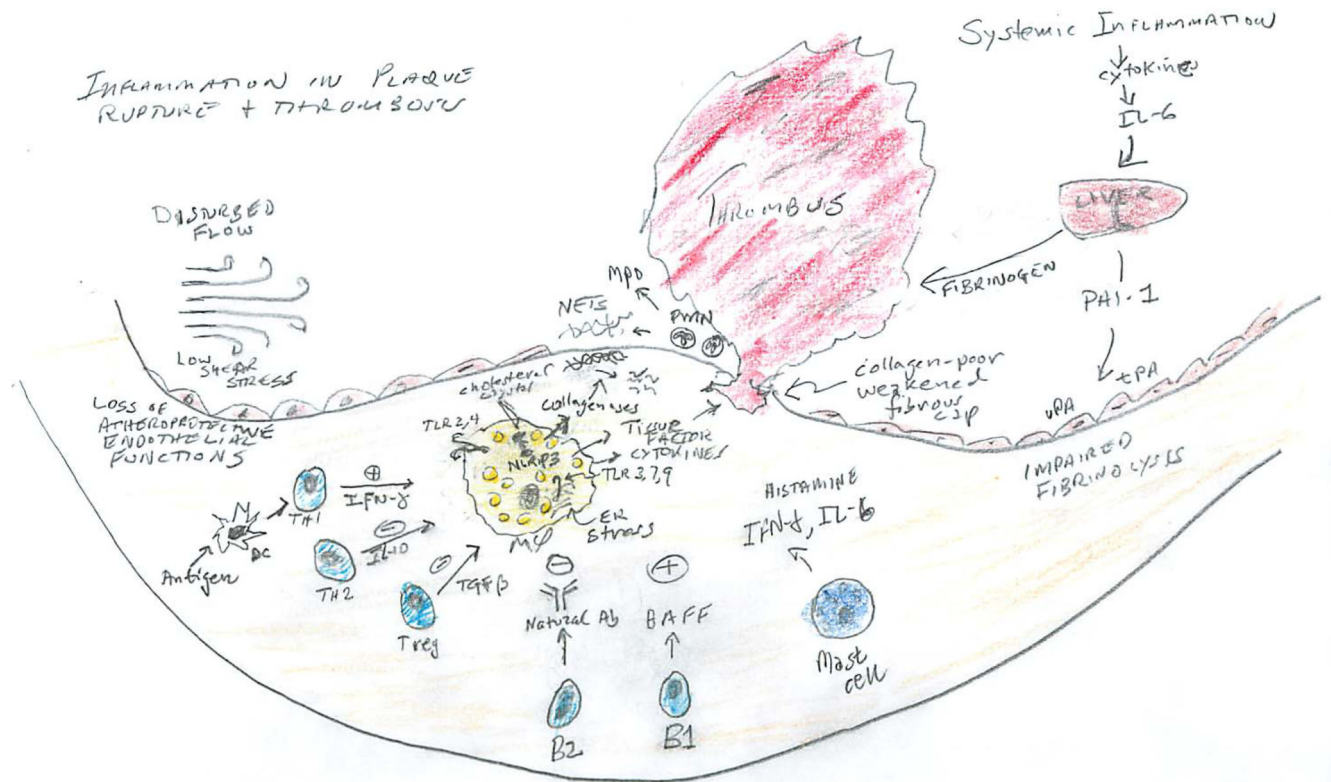 INFLAMMATION IN PLAQUE
RUPTURE + THROMBOSIS
Systemic INFLAMMATION
cytokines
IL-6
LIVER
FIBRINOGEN
PAI-1
tPA
uPA
IMPAIRED
FIBRINOLYSIS
DISTURBED
FLOW
LOW
SHEAR
STRESS
LOSS OF
ATHEROPROTECTIVE
ENDOTHELIAL
FUNCTIONS
THROMBUS
MPO
NETS
PMN
collagen-poor
weakened
fibrous
cap
cholesterol
crystal
collagenases
TLR2,4
NLRP3
TISSUE
FACTOR
CYTOKINES
TLR3,7,9
ER
stress
MФ
Antigen
DC
TH1
+
IFN-γ
TH2
-
IL-10
Treg
-
TGFβ
-
Natural Ab
B2
+
BAFF
B1
HISTAMINE
IFN-γ, IL-6
Mast
cell